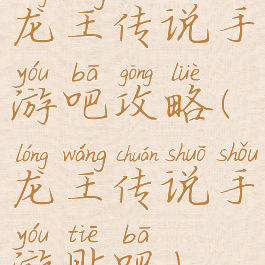 龙王传说手
yóu bā gōng lüè
游吧攻略(
lóng wáng chuán shuō shǒu
龙王传说手
yóu tiē bā
游贴吧)